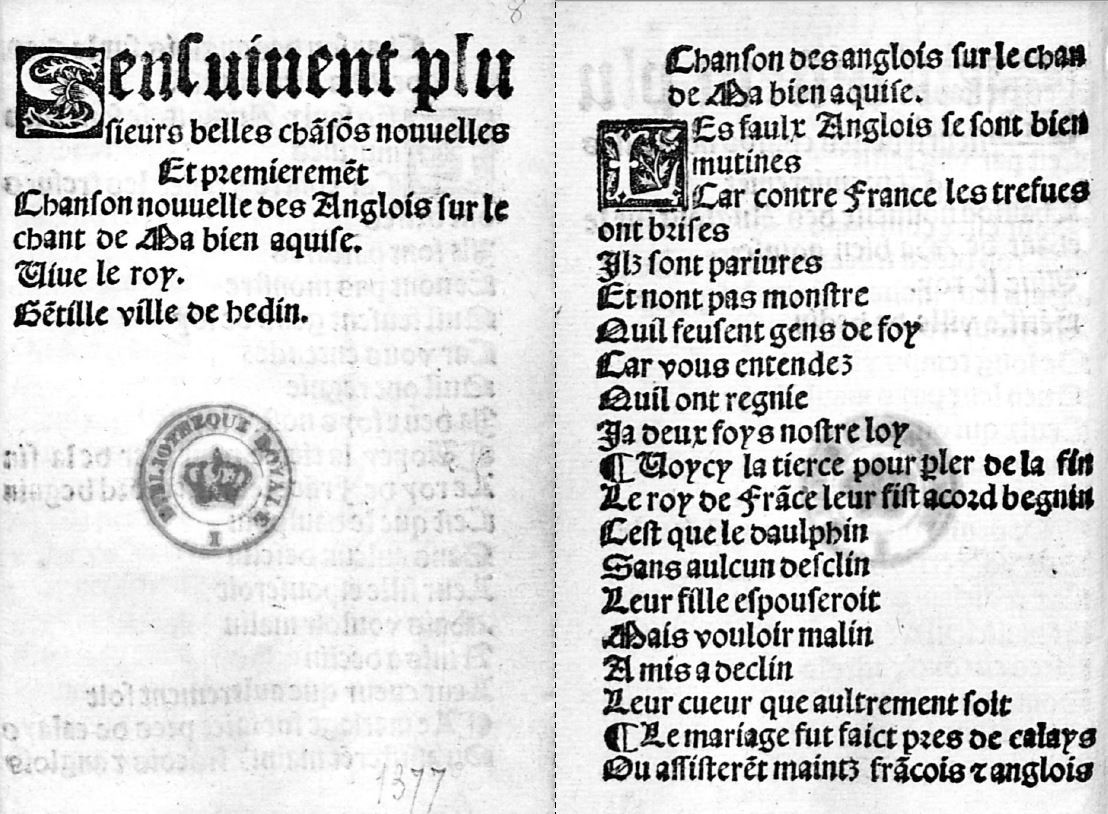 8
Sensuiuent plu
sieurs belles chãsõs nouuelles
Et premieremẽt
Chanson nouuelle des Anglois sur le
chant de Ma bien aquise.
Viue le roy.
Gẽtille ville de hedin.
BIBLIOTHEQUE ROYALE
I
1377
Chanson des anglois sur le chan
de Ma bien aquise.
LEs faulx Anglois se sont bien
mutines
Car contre France les trefues
ont brises
Ilz sont pariures
Et nont pas monstre
Quil feusent gens de foy
Car vous entendez
Quil ont regnie
Ja deux foys nostre loy
¶ Voycy la tierce pour ꝑler de la fin
Le roy de Frãce leur fist acord begnin
Cest que le daulphin
Sans aulcun desclin
Leur fille espouseroit
Mais vouloir malin
A mis a declin
Leur cueur que aultrement soit
¶ Le mariage fut faict pres de calays
Ou assisterẽt maintz frãcois ⁊ anglois